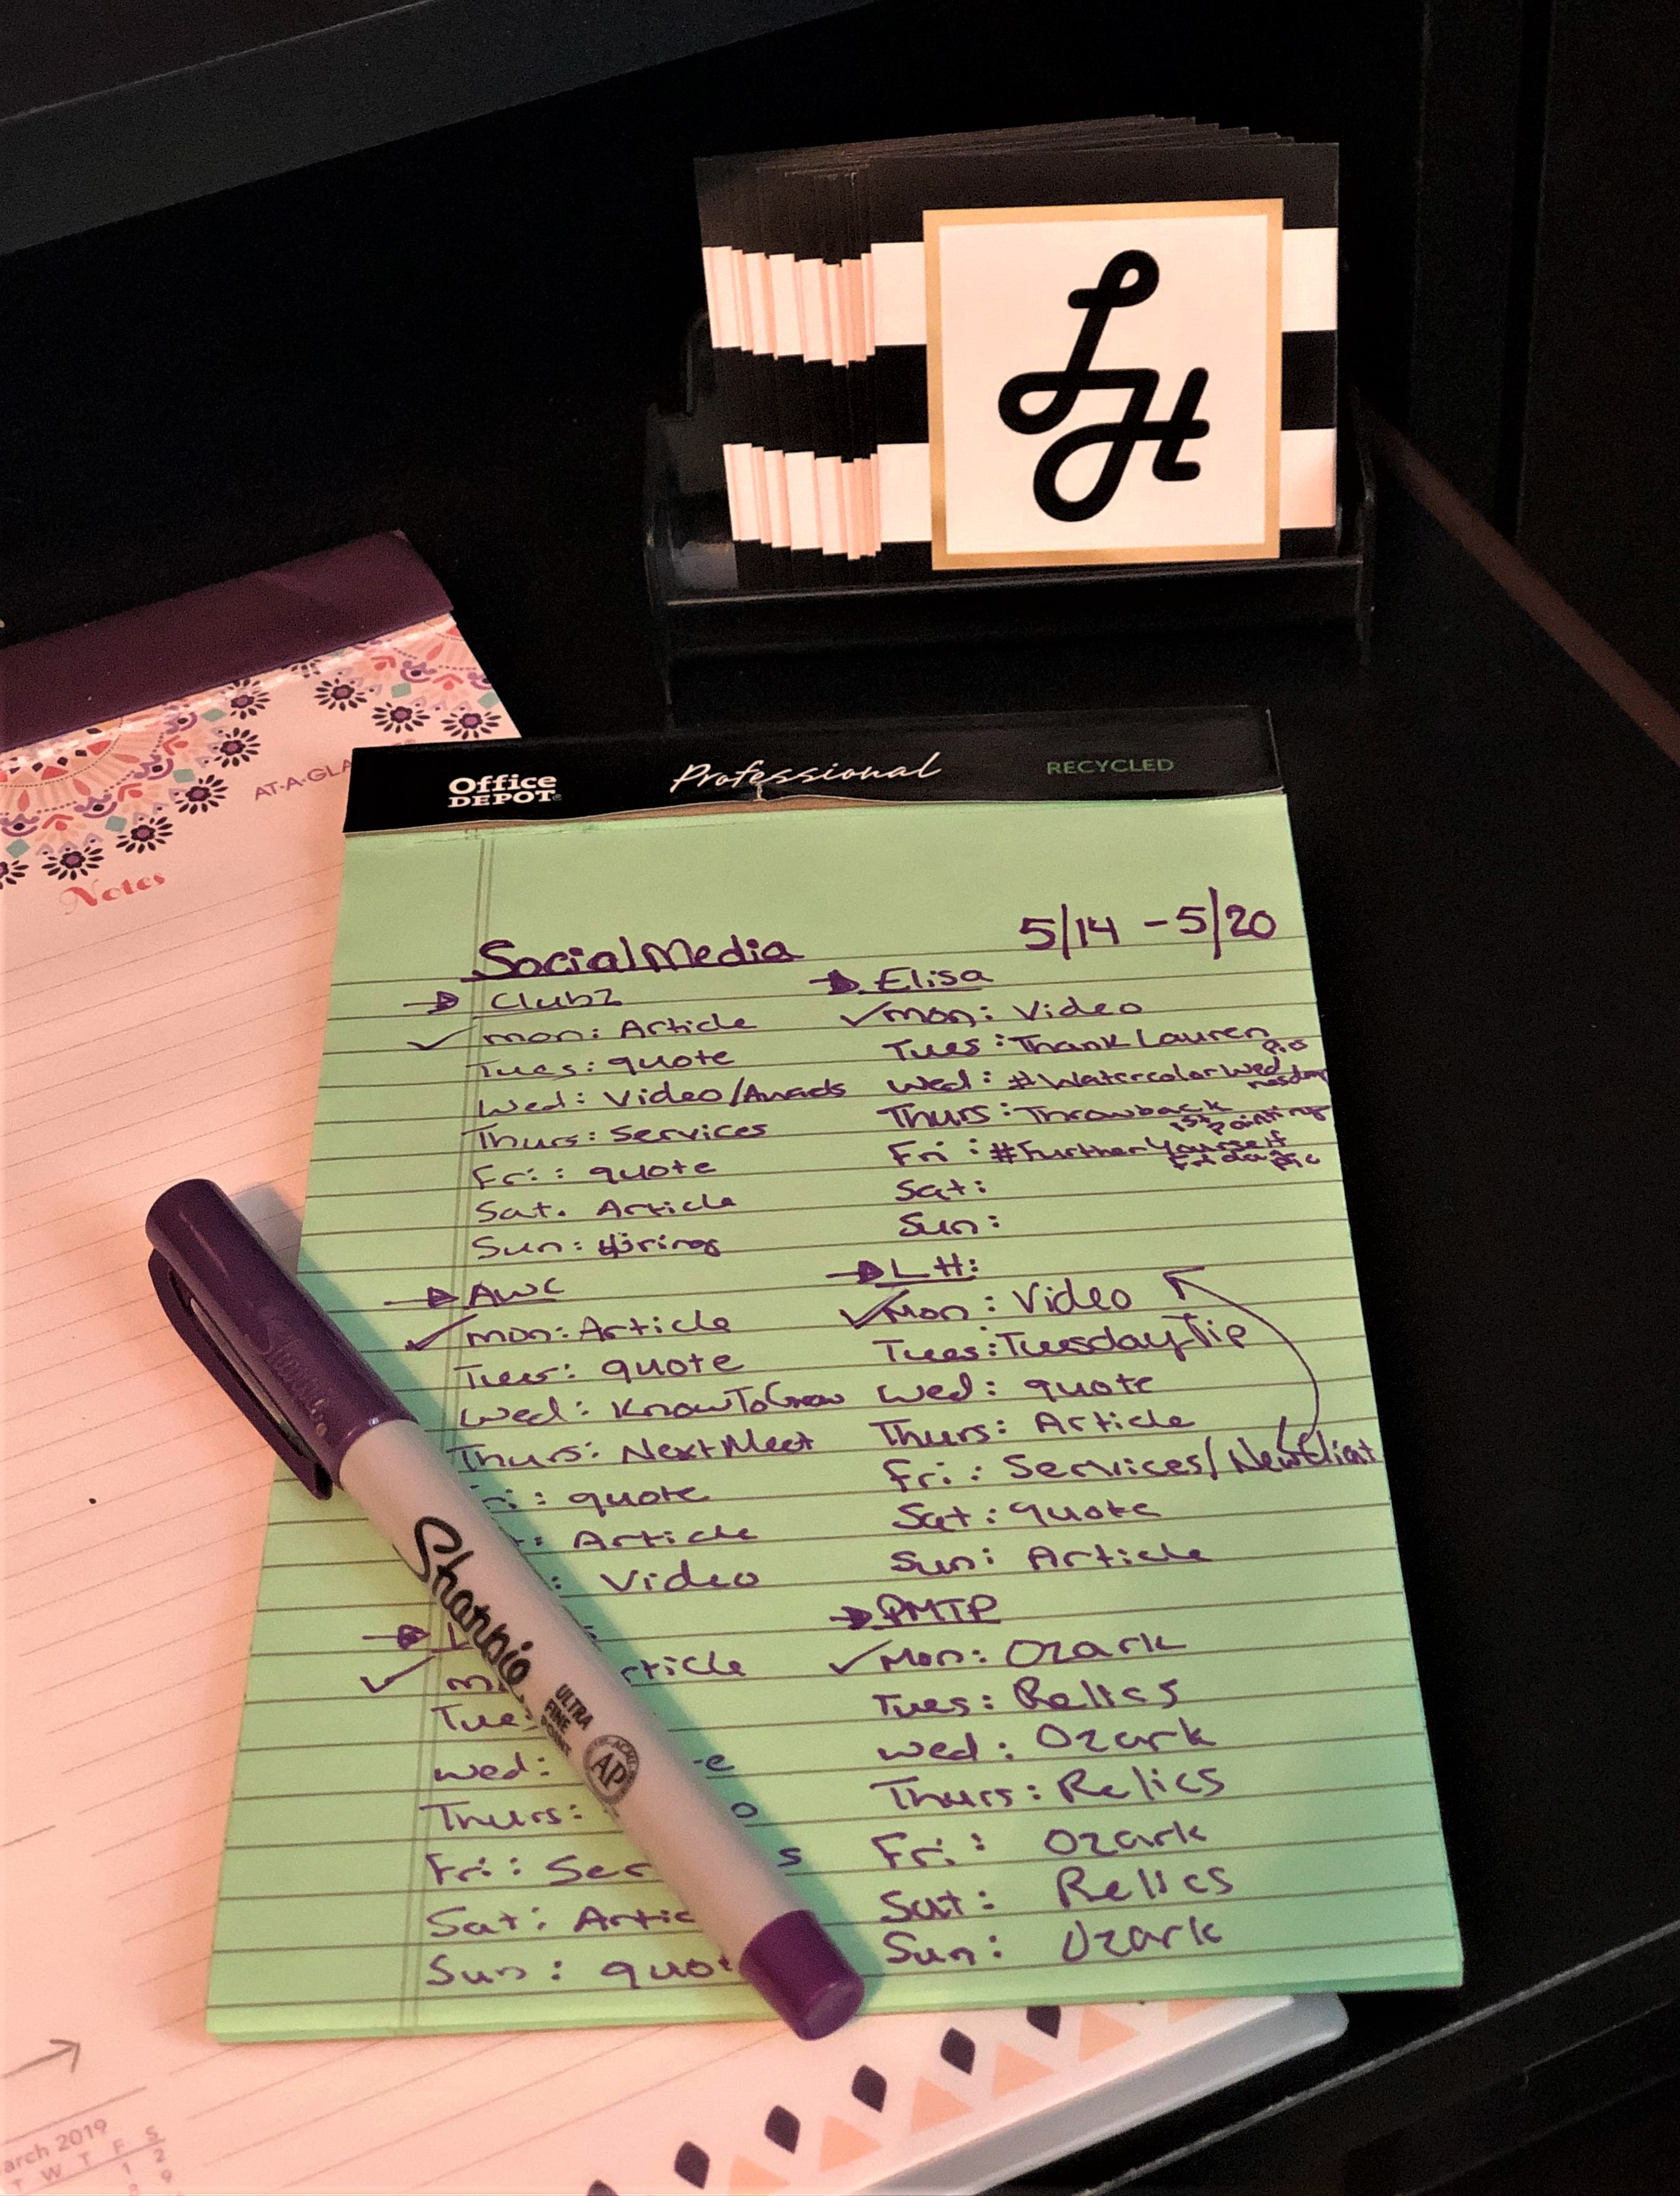 LH
Office
DEPOT
Professional
RECYCLED
AT-A-GLA
Notes
5/14 - 5/20
Social Media
ClubZ
mon: Article
Tues: quote
Wed: Video/Awards
Thurs: Services
Fri: quote
Sat. Article
Sun: Hiring
AWC
mon: Article
Tues: quote
Wed: KnowToGrow
Thurs: Next Meet
ri: quote
: Article
: Video
L
m rticle
Tue
Wed: e
Thurs: o
Fri: Ser s
Sat: Artic
Sun: quot
Elisa
mon: Video
Tues: Thank Lauren
pic
Wed: #WatercolorWed
nesday
Thurs: Throwback
1st painting
Fri: #FurtherYourself
Friday pic
Sat:
Sun:
LH:
Mon: Video
Tues: Tuesday Tip
Wed: quote
Thurs: Article
Fri: Services/New Client
Sat: quote
Sun: Article
PMTP
Mon: Ozark
Tues: Relics
Wed: Ozark
Thurs: Relics
Fri: Ozark
Sat: Relics
Sun: Ozark
Sharpie
Sharpie
ULTRA
FINE
POINT
AP
arch 2019
T W T F S
1 2
8 9